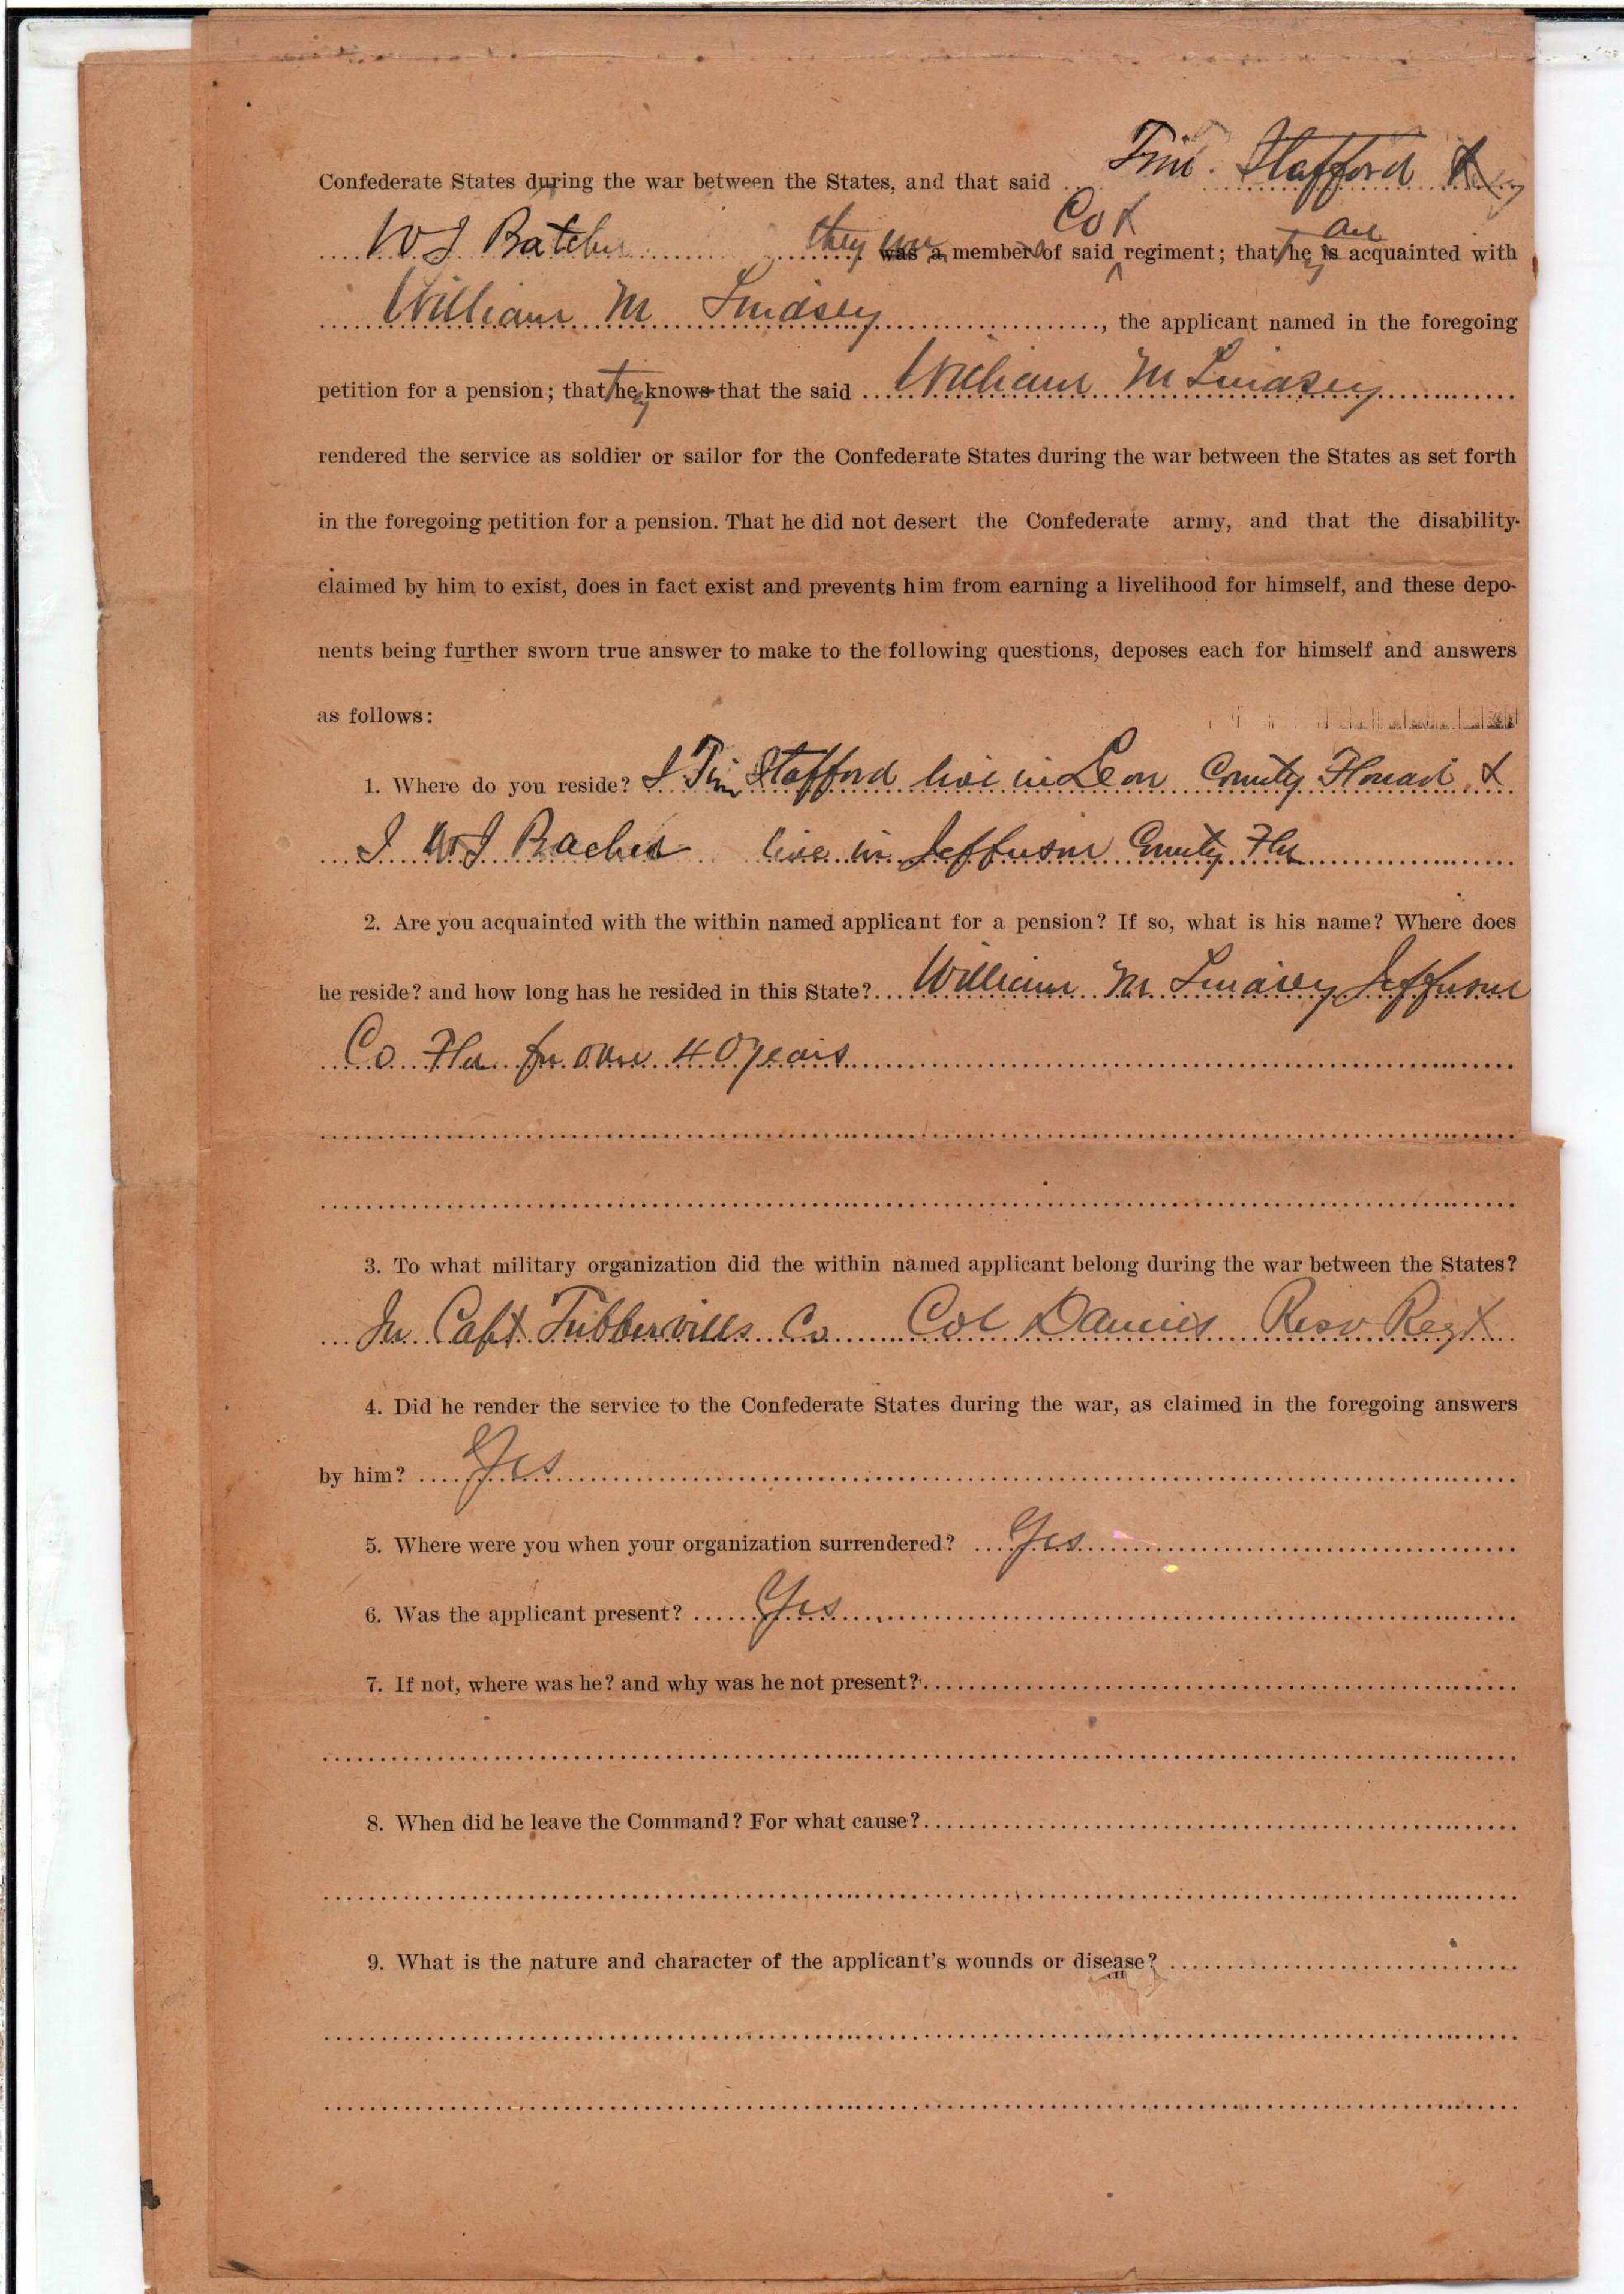 Confederate States during the war between the States, and that said Tim Stafford &
W J Batcher they were a member of said Co & regiment; that they are acquainted with
William M Lindsey, the applicant named in the foregoing
petition for a pension; that they know that the said William M Lindsey
rendered the service as soldier or sailor for the Confederate States during the war between the States as set forth
in the foregoing petition for a pension. That he did not desert the Confederate army, and that the disability
claimed by him to exist, does in fact exist and prevents him from earning a livelihood for himself, and these depo-
nents being further sworn true answer to make to the following questions, deposes each for himself and answers
as follows:
1. Where do you reside? I Tim Stafford live in Leon County Florida &
I W J live in Jefferson County Fla
2. Are you acquainted with the within named applicant for a pension? If so, what is his name? Where does
he reside? and how long has he resided in this State? William M Lindsey Jefferson
Co Fla for over 40 years
3. To what military organization did the within named applicant belong during the war between the States?
In Capt Co Col Daniels Resv Regt
4. Did he render the service to the Confederate States during the war, as claimed in the foregoing answers
by him? Yes
5. Where were you when your organization surrendered? Yes
6. Was the applicant present? Yes
7. If not, where was he? and why was he not present?
8. When did he leave the Command? For what cause?
9. What is the nature and character of the applicant's wounds or disease?